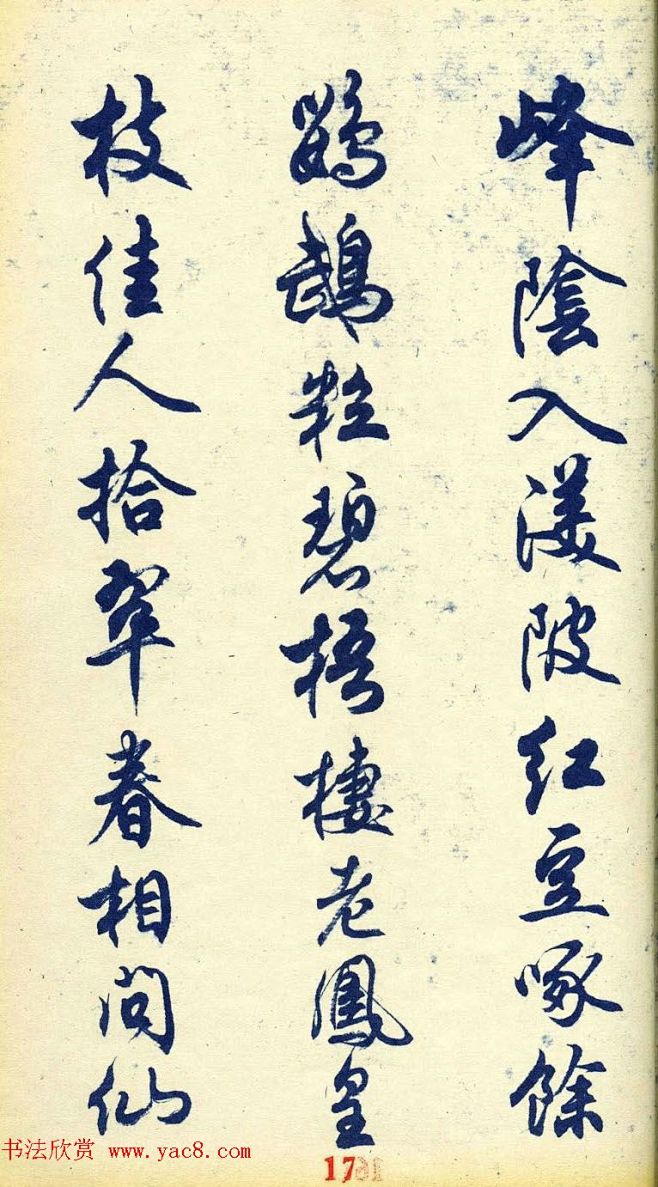 峰陰入渼陂紅豆啄餘
鸚鵡粒碧梧棲老鳳皇
枝佳人拾翠春相問仙
书法欣赏 www.yac8.com
17